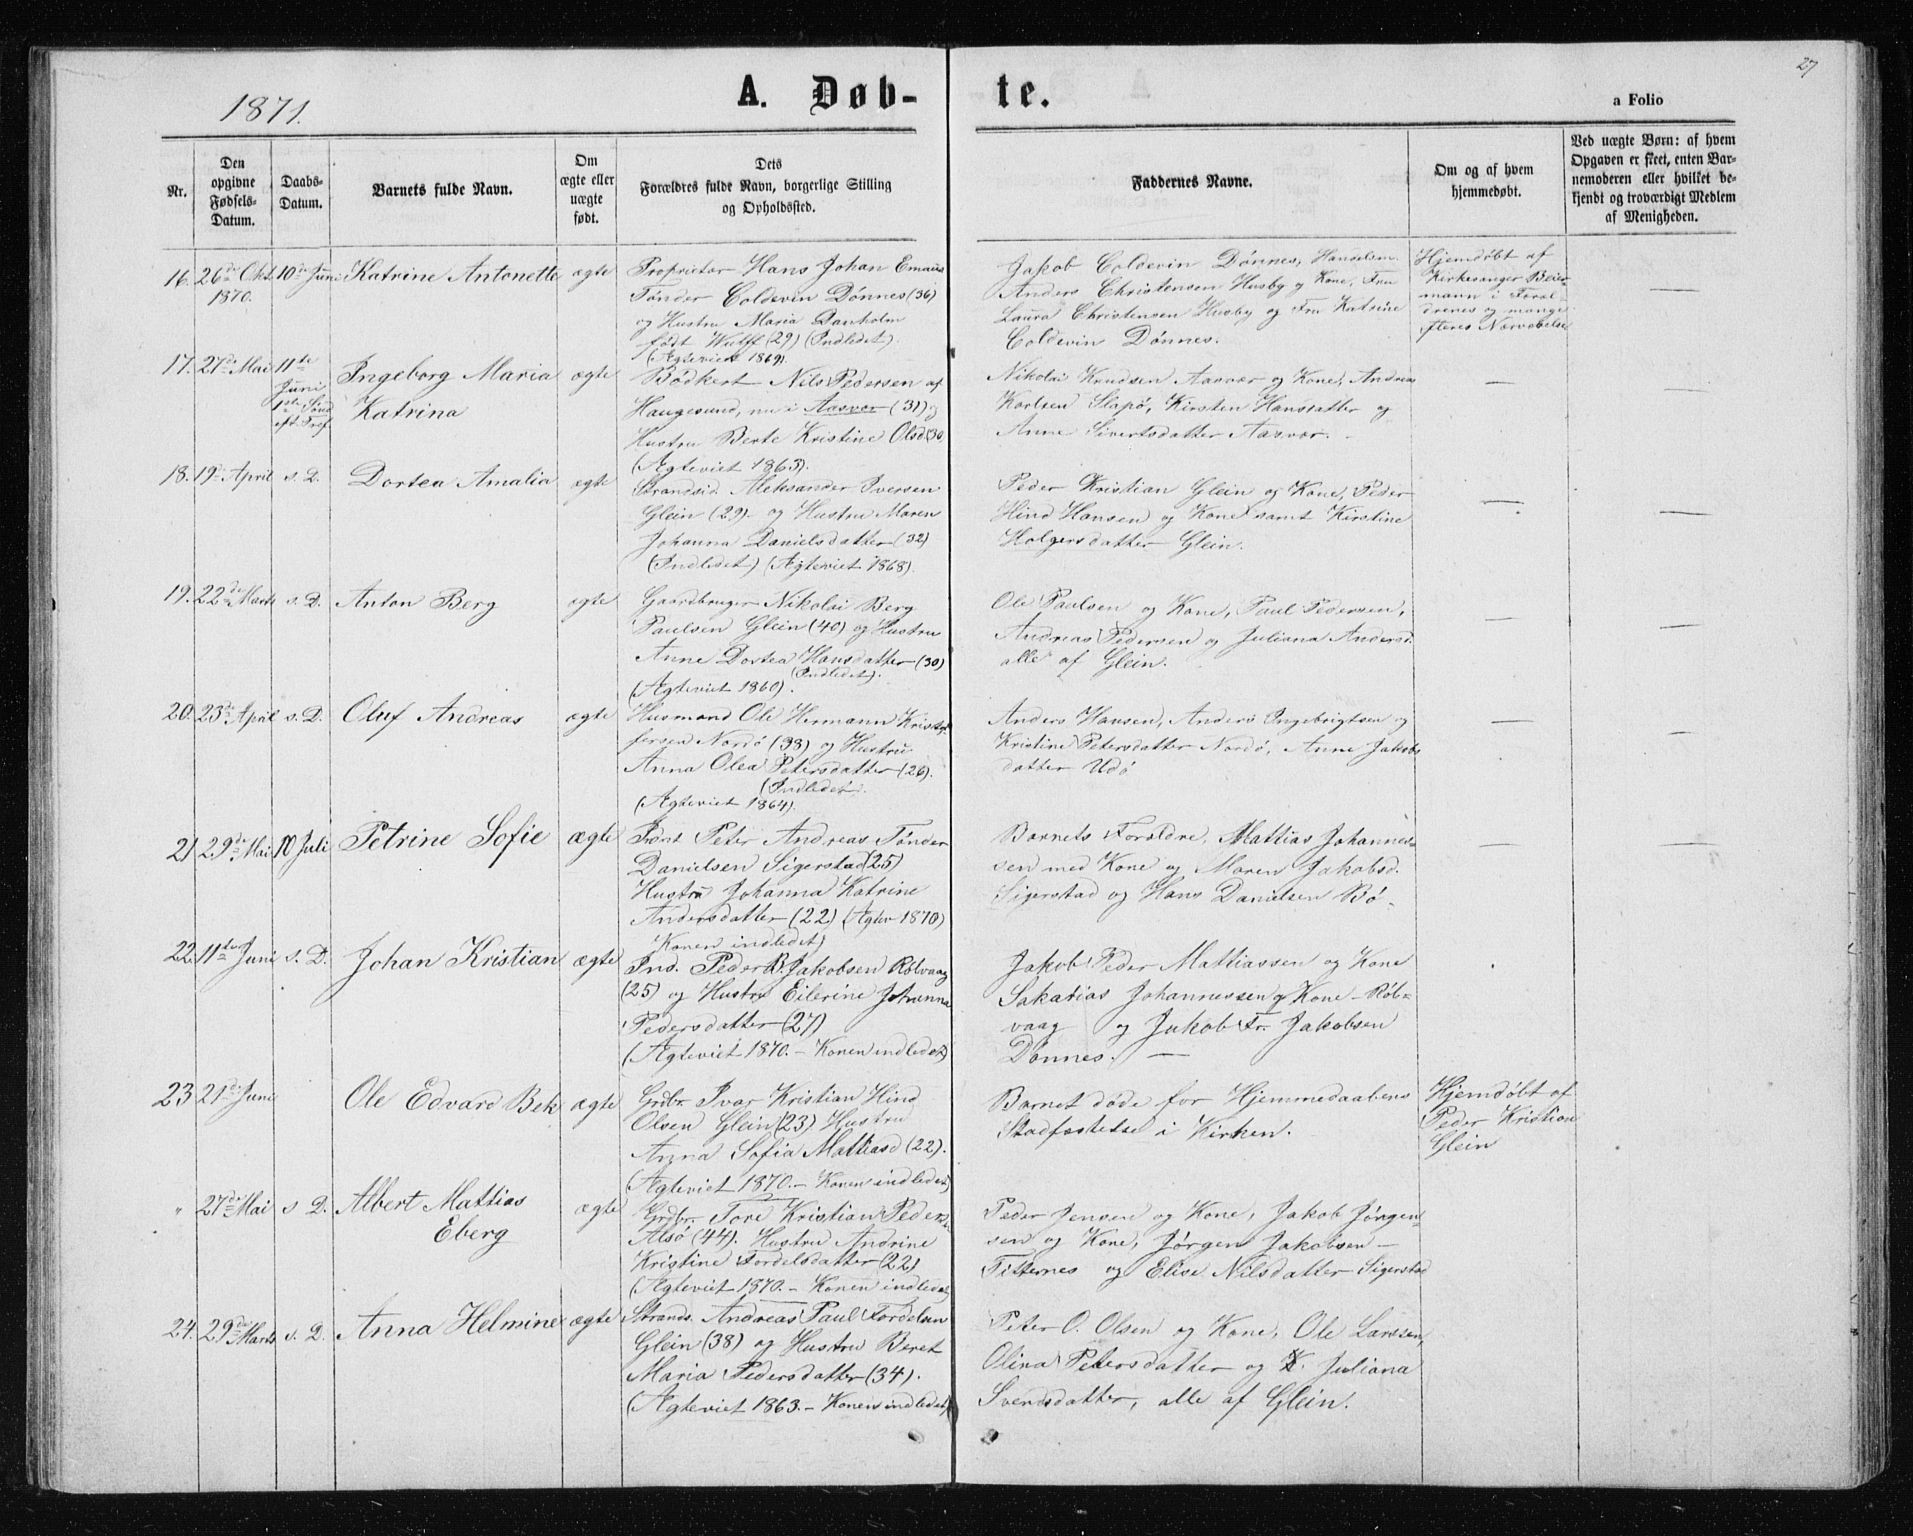 27
1871.
A. Døb-
te.
a Folio
Nr.
Den
opgivne
Fødsels-
Datum.
Daabs-
Datum.
Barnets fulde Navn.
Om
ægte eller
uægte
født.
Dets
Forældres fulde Navn, borgerlige Stilling
og Opholdssted.
Faddernes Navne.
Om og af hvem
hjemmedøbt.
Ved uægte Børn: af hvem
Opgaven er skeet, enten Bar-
nemoderen eller hvilket be-
kjendt og troværdigt Medlem
af Menigheden.
16. 26de Okt. 1870. 10de Juni Katrine Antonette ægte
Proprietær Hans Johan Emaus
Tønder Coldevin Dønnes (36)
og Hustru Maria Danholm
født Wulff (29) (Indledet).
(Ægteviet 1869).
Jakob Coldevin Dønnes, Handelsm.
Anders Christensen Husby og Kone, Fru
Laura Christensen Husby og Fru Katrine
Coldevin Dønnes.
Hjemdøbt af
Kirkesanger Beier-
mann i Foræl-
drenes og mange
fleres Nærværelse
—
17. 27de Mai 11te Juni 1ste Sønd. eft. Tref. Ingeborg Maria
Katrina ægte
Bødkert Nils Pedersen af
Haugesund, nu i Aasvær (31) og
Hustru Berte Kristine Olsd (30
(Ægteviet 1863).
Nikolai Knudsen Aasvær og Kone, Andreas
Karlsen Slapø, Kirsten Hansdatter og
Anne Sivertsdatter Aasvær. -
—
—
18. 19de April s. D. Dortea Amalia ægte
Strandsid. Aleksander Iversen
Glein (29) og Hustru Maren
Johanna Danielsdatter (32)
(Indledet) (Ægteviet 1868).
Peder Kristian Glein og Kone, Peder
Hind Hansen og Kone samt Kirstine
Holgersdatter Glein.
—
—
19. 22de Marts s. D. Anton Berg ægte
Gaardbruger Nikolai Berg
Paulsen Glein (40) og Hustru
Anne Dortea Hansdatter (30)
(Indledet).
(Ægteviet 1860).
Ole Paulsen og Kone, Paul Pedersen,
Andreas Pedersen og Juliana Andersd.
alle af Glein.
—
—
20. 23de April s. D. Oluf Andreas ægte
Husmand Ole Hermann Kristof-
fersen Nordø (38) og Hustru
Anna Olea Petersdatter (26).
(Indledet).
(Ægteviet 1864).
Anders Hansen, Anders Ingebrigtsen og
Kristine Petersdatter Nordø, Anne Jakobs
datter Udø
—
—
21 29de Mai 10 Juli Petrine Sofie ægte
Peter Andreas Tønder
Danielsen Sigerstad (25)
Hustru Johanna Katrine
Andersdatter (22) (Ægtev 1870)
Konen indledet)
Barnets Forældre, Mattias Johannes-
sen med Kone og Maren Jakobsd.
Sigerstad og Hans Danielsen Bø.
—
—
22. 11te Juni s. D. Johan Kristian ægte
Ind. Peder B. Jakobsen Rølvaag
(25) og Hustru Eilerine Johanna
Pedersdatter (27)
(Ægteviet 1870. – Konen indledet)
Jakob Peder Mattiassen og Kone
Sakarias Johannessen og Kone – Røl-
vaag og Jakob Fr. Jakobsen
Dønnes. —
23 21de Juni Ole Edvard Bek ægte
Grdbr. Ivar Kristian Hind
Olsen Glein (23) Hustru
Anna Sofia Mattiasd (22).
(Ægteviet 1870. – Konen indledet)
Barnet døde før Hjemmedaabens
Stadfæstelse i Kirken.
Hjemdøbt af
Peder Kristian
Glein
" 27de Mai s D. Albert Mattias
Eberg ægte
Grdbr. Tore Kristian Peders
Alsø (44). Hustru Andrine
Kristine Tordelsdatter (22)
(Ægteviet 1870. – Konen indledet
Peder Jensen og Kone, Jakob Jørgen-
sen og Kone, Jørgen Jakobsen –
Titternes og Elise Nilsdatter Sigerstad
24. 29de Marts s. D. Anna Helmine ægte
Strands. Andreas Paul Tordelsen
Glein (38) og Hustru Beret
Maria Pedersdatter (34).
(Ægteviet 1863. – Konen indledet)
Peter O. Olsen og Kone, Ole Larssen,
Olina Petersdatter og K. Juliana
Svendsdatter, alle af Glein.